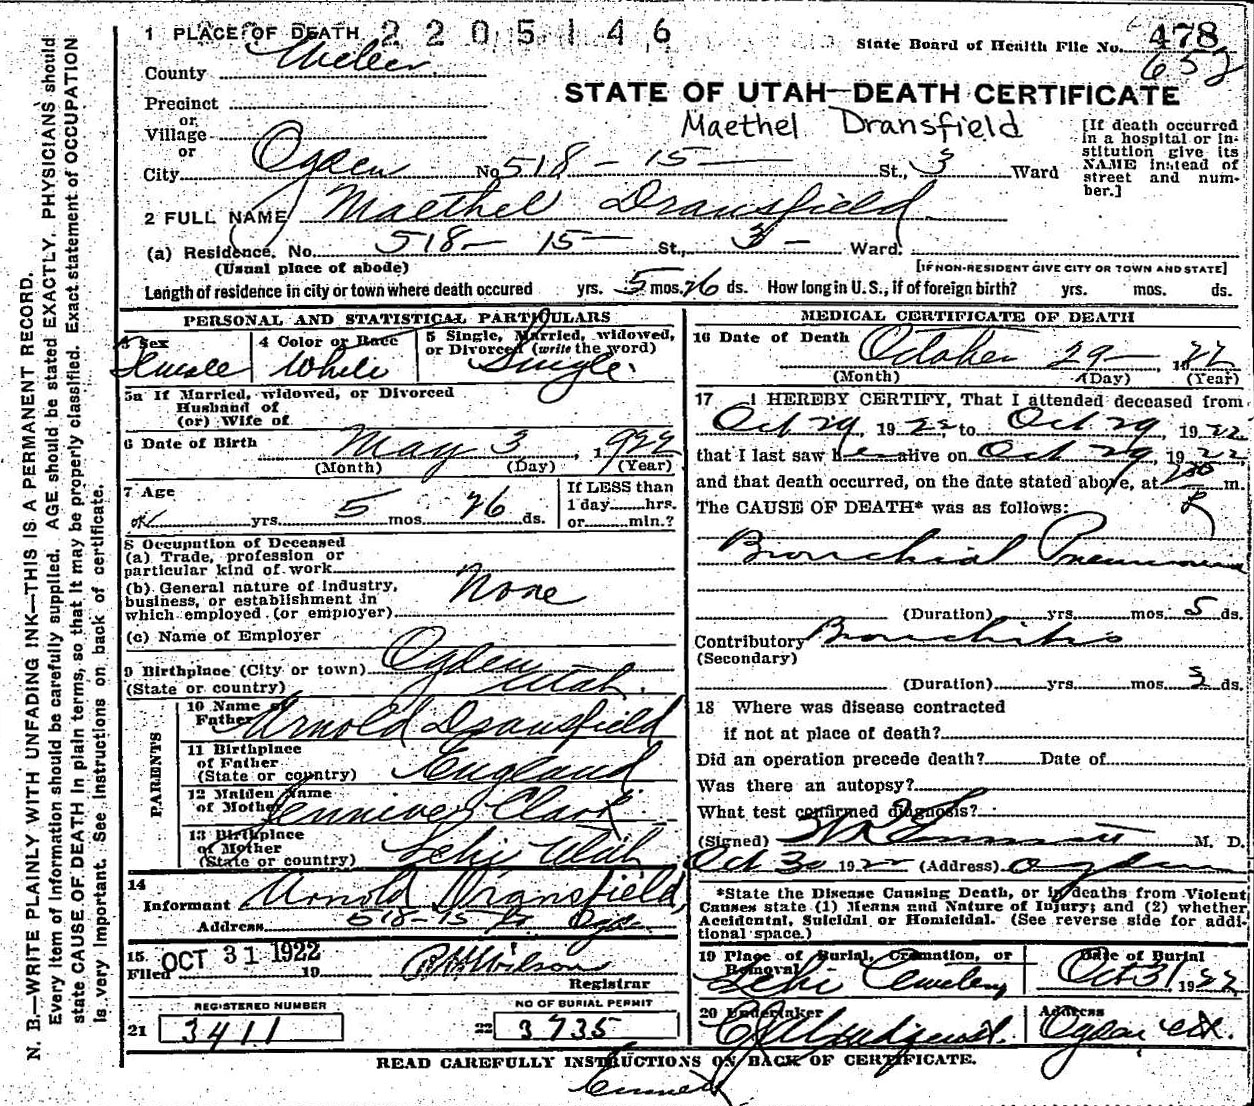 1 PLACE OF DEATH 2205146
State Board of Health File No. 478
652
County Weber
STATE OF UTAH—DEATH CERTIFICATE
Maethel Dransfield
Precinct
or
Village
or
City Ogden No 518 - 15 — St., 3 Ward
[If death occurred
in a hospital or in-
stitution give its
NAME instead of
street and num-
ber.]
2 FULL NAME Maethel Dransfield
(a) Residence. No. 518 — 15 — St., 3 — Ward.
(Usual place of abode)
[IF NON-RESIDENT GIVE CITY OR TOWN AND STATE]
Length of residence in city or town where death occured yrs. 5 mos. 26 ds. How long in U. S., if of foreign birth? yrs. mos. ds.
PERSONAL AND STATISTICAL PARTICULARS
3 Sex
Female
4 Color or Race
White
5 Single, Married, widowed,
or Divorced (write the word)
Single
5a If Married, widowed, or Divorced
Husband of
(or) Wife of
6 Date of Birth May 3, 1922
(Month) (Day) (Year)
7 Age
yrs. 5 mos. 26 ds.
If LESS than
1 day hrs.
or min.?
8 Occupation of Deceased
(a) Trade, profession or
particular kind of work
(b) General nature of industry,
business, or establishment in
which employed (or employer)
None
(c) Name of Employer
9 Birthplace (City or town) Ogden
(State or country) Utah.
PARENTS
10 Name of
Father Arnold Dransfield
11 Birthplace
of Father
(State or country) England
12 Maiden Name
of Mother Clark
13 Birthplace
of Mother
(State or country) Lehi Utah
14
Informant Arnold Dransfield,
Address 518-15 St Ogden
15
Filed OCT 31 1922 19
R H Wilson
Registrar
REGISTERED NUMBER
21 3411
NO OF BURIAL PERMIT
22 3735
MEDICAL CERTIFICATE OF DEATH
16 Date of Death October 29 — 1922
(Month) (Day) (Year)
17 I HEREBY CERTIFY, That I attended deceased from
Oct 29, 1922, to Oct 29, 1922
that I last saw her alive on Oct 29, 1922,
and that death occurred, on the date stated above, at m.
The CAUSE OF DEATH* was as follows:
Bronchial Pneumonia
(Duration) yrs. mos. 5 ds.
Contributory Bronchitis
(Secondary)
(Duration) yrs. mos. ds.
18 Where was disease contracted
if not at place of death?
Did an operation precede death? Date of
Was there an autopsy?
What test confirmed diagnosis?
(Signed) M. D.
Oct 30 1922 (Address) Ogden
*State the Disease Causing Death, or in deaths from Violent
Causes state (1) Means and Nature of Injury; and (2) whether
Accidental, Suicidal or Homicidal. (See reverse side for addi-
tional space.)
19 Place of Burial, Cremation, or
Removal
Lehi Cemetery
Date of Burial
Oct 31, 1922
20 Undertaker
Address
Ogden Ut.
READ CAREFULLY INSTRUCTIONS ON BACK OF CERTIFICATE.
N. B.—WRITE PLAINLY WITH UNFADING INK—THIS IS A PERMANENT RECORD.
Every item of information should be carefully supplied. AGE should be stated EXACTLY. PHYSICIANS should
state CAUSE OF DEATH in plain terms, so that it may be properly classified. Exact statement of OCCUPATION
is very important. See Instructions on back of certificate.